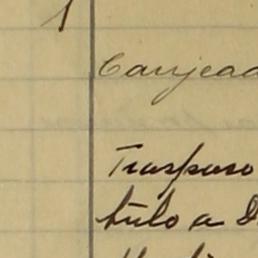 1
Canjead
Traspaso
tulo a D